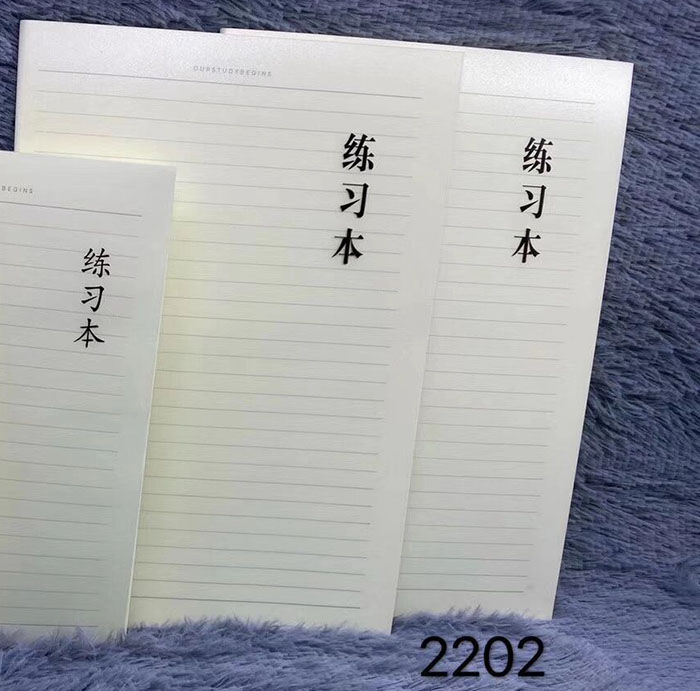 OURSTUDYBEGINS
练习本
练习本
BEGINS
练习本
2202